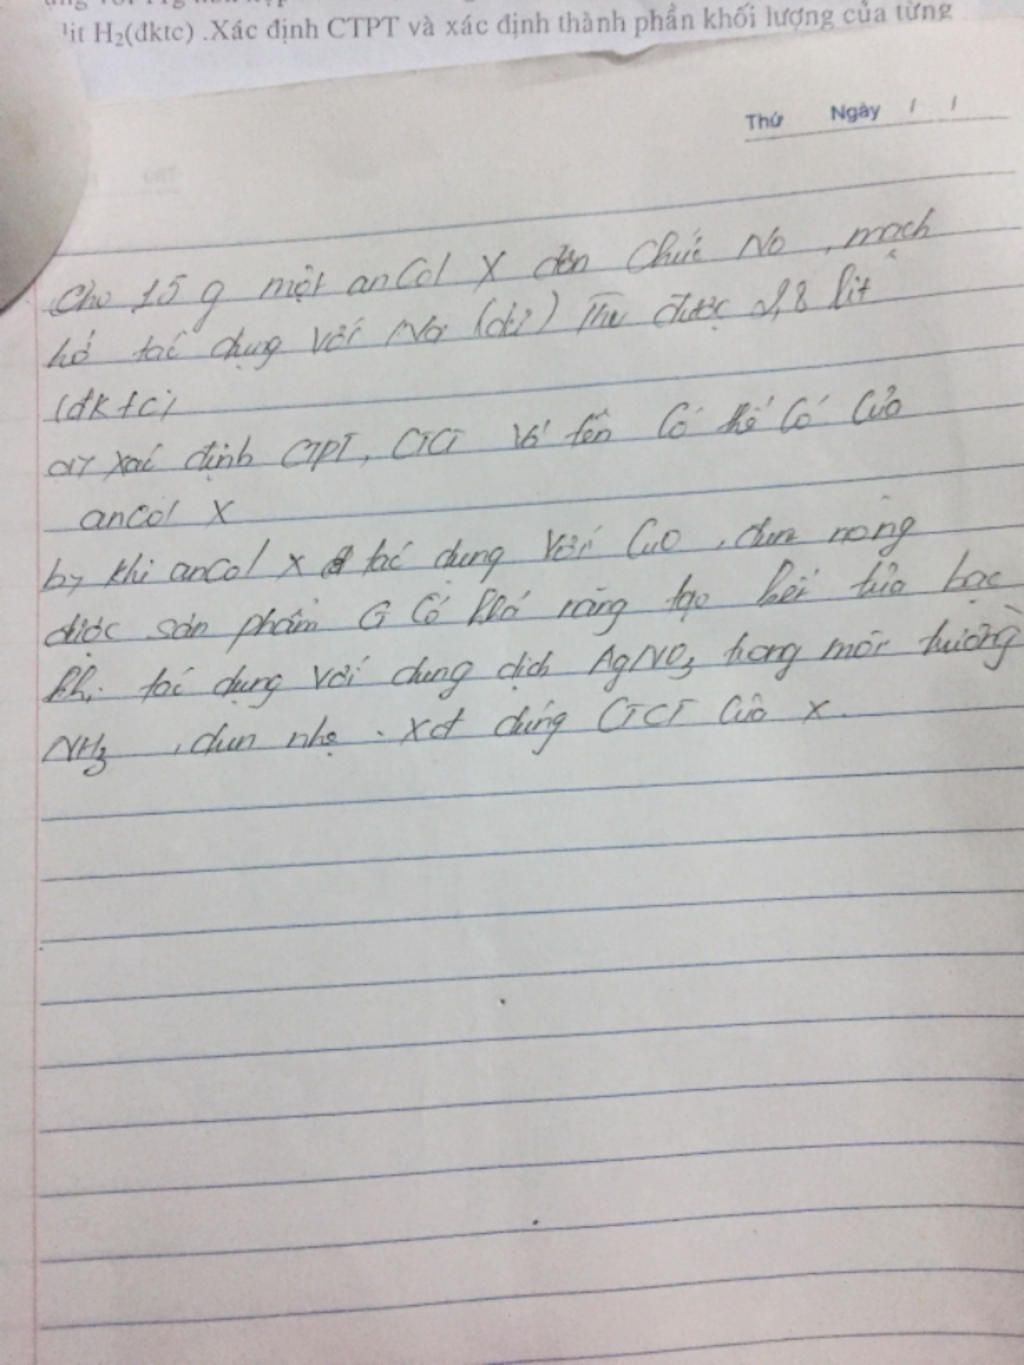 lit H₂(đktc) .Xác định CTPT và xác định thành phần khối lượng của từng
Thứ Ngày / /
Cho 15 g một ancol X đơn chức No, mạch
hở tác dụng với Na (dư) Thu được 2,8 lit
(đktc)
a, xác định CTPT, CTCT và tên có thể có của
ancol X
b, khi ancol X tác dụng với CuO, đun nóng
được sản phẩm G có khả năng tạo kết tủa bạc
khi tác dụng với dung dịch AgNO₃ trong môi trường
NH₃, đun nhẹ. Xđ đúng CTCT của X.